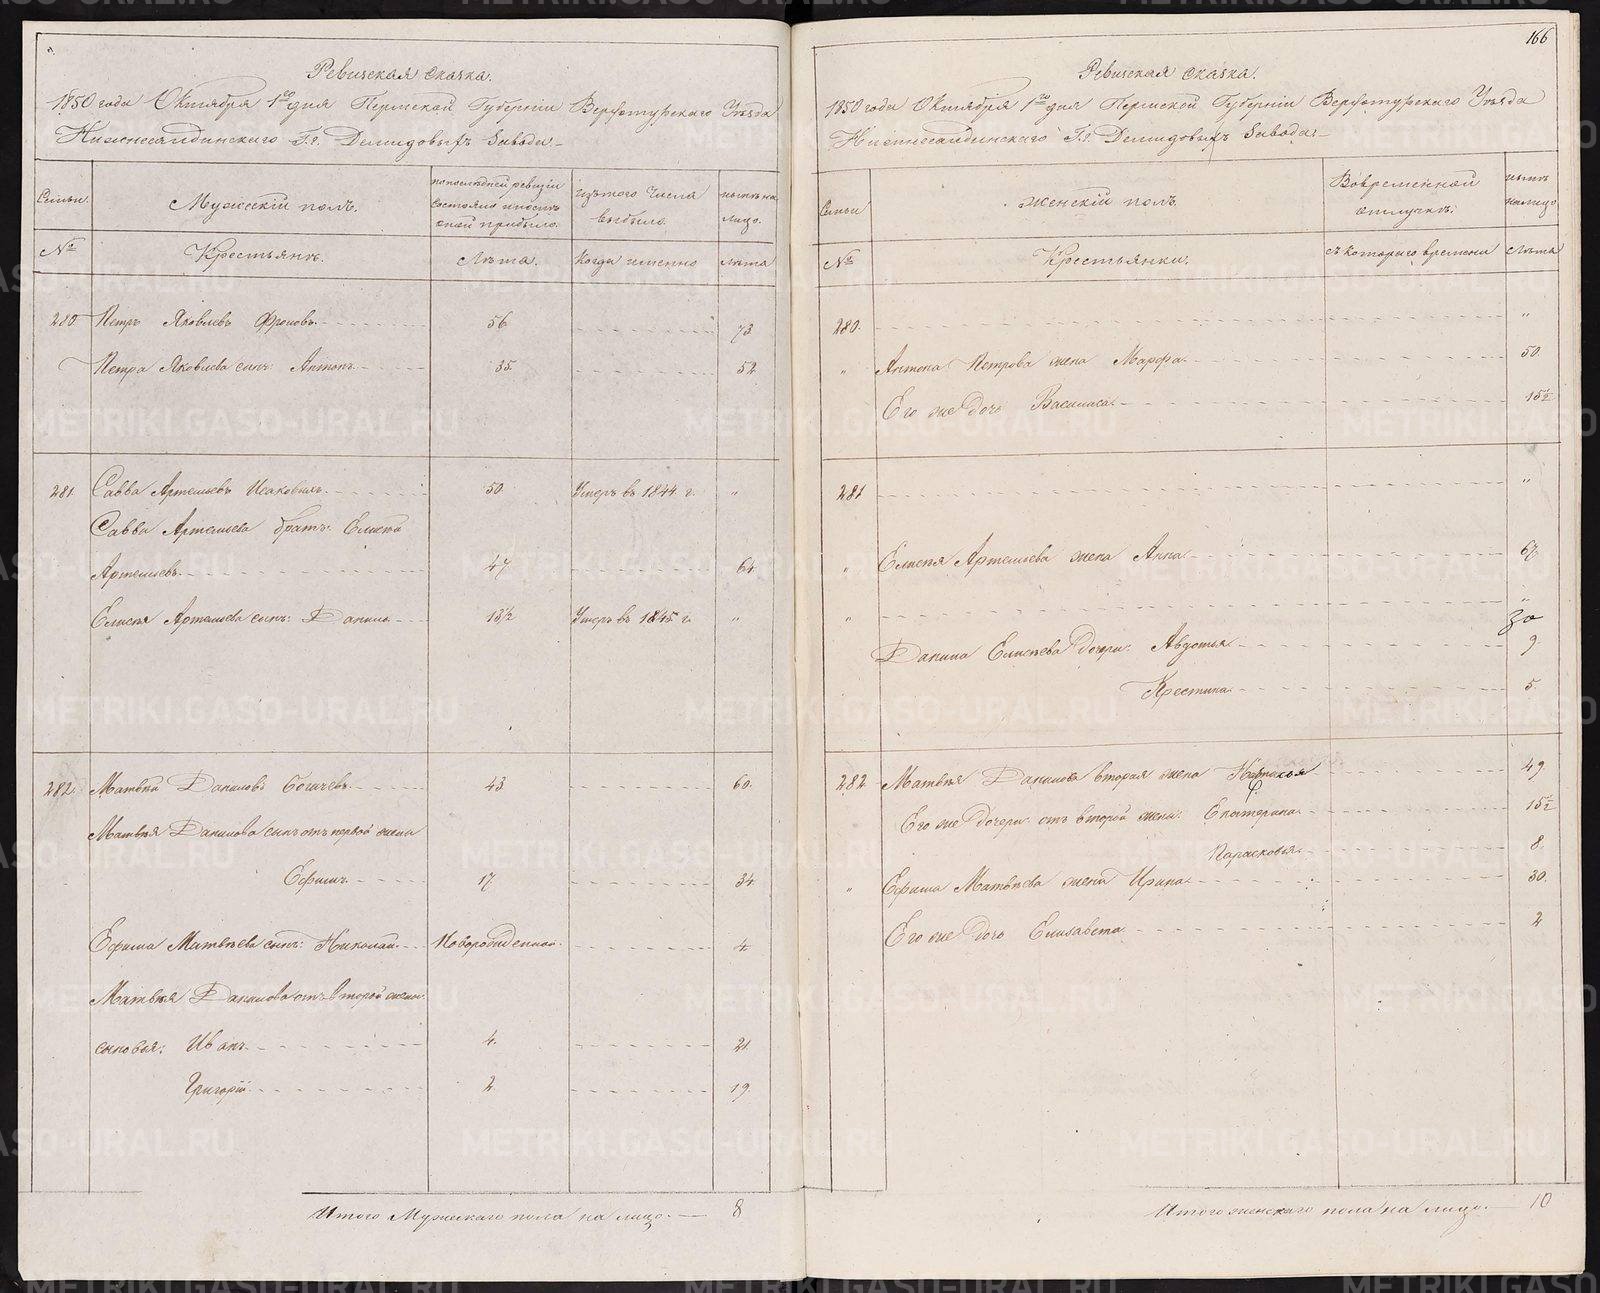 Ревизская сказка.
1850 года Октября 1го дня Пермской Губернiи Верхотурскаго Уѣзда
Нижнесалдинскаго Г.г. Демидовыхъ Завода.
Семьи.
Мужескiй полъ.
по последней ревизiи состояло и послѣ оной прибыло.
Изъ того числа выбыло.
нынѣ на лицо.
№
Крестьянъ.
Лѣта.
Когда именно
Лѣта
280 Петръ Яковлевъ Фроловъ. 56 73
Петра Яковлева сынъ: Антонъ 35. 52
281 Савва Артемьевъ Исаковыхъ. 50. Умеръ въ 1844 г. "
Савва Артемьева братъ: Елисѣй
Артемьевъ 47 64
Елисѣя Артемьева сынъ: Данило 13 1/2 Умеръ въ 1845 г. "
282. Матвѣй Даниловъ Богачевъ. 43 60.
Матвѣя Данилова сынъ отъ первой жены
Ефимъ 17. 34.
Ефима Матвѣева сынъ: Николай. Новорожденной. 4.
Матвѣя Данилова отъ второй жены.
сыновья: Иванъ 4. 21.
Григорiй. 2 19.
Итого Мужескаго пола на лицо. 8
166
Ревизская сказка.
1850 года Октября 1го дня Пермской Губернiи Верхотурскаго Уѣзда
Нижнесалдинскаго Г.г. Демидовыхъ Завода.
Семьи
Женскiй полъ
Во временной отлучкѣ.
нынѣ на лицо
№
Крестьянки.
съ котораго времени
Лѣта
280. "
" Антона Петрова жена Марфа 50.
Его же дочь Василиса. 15 1/2
281 "
" Елисѣя Артемьева жена Анна 67
" "
30
Данила Елисѣева дочери: Авдотья 9
Крестина. 5.
282 Матвѣя Данилова вторая жена 49
Его же дочери отъ второй жены: Екатерина. 15 1/2
Парасковья. 8.
" Ефима Матвѣева жена Ирина. 30.
Его же дочь Елисавета 2
Итого женскаго пола на лицо. 10
METRIKI.GASO-URAL.RU